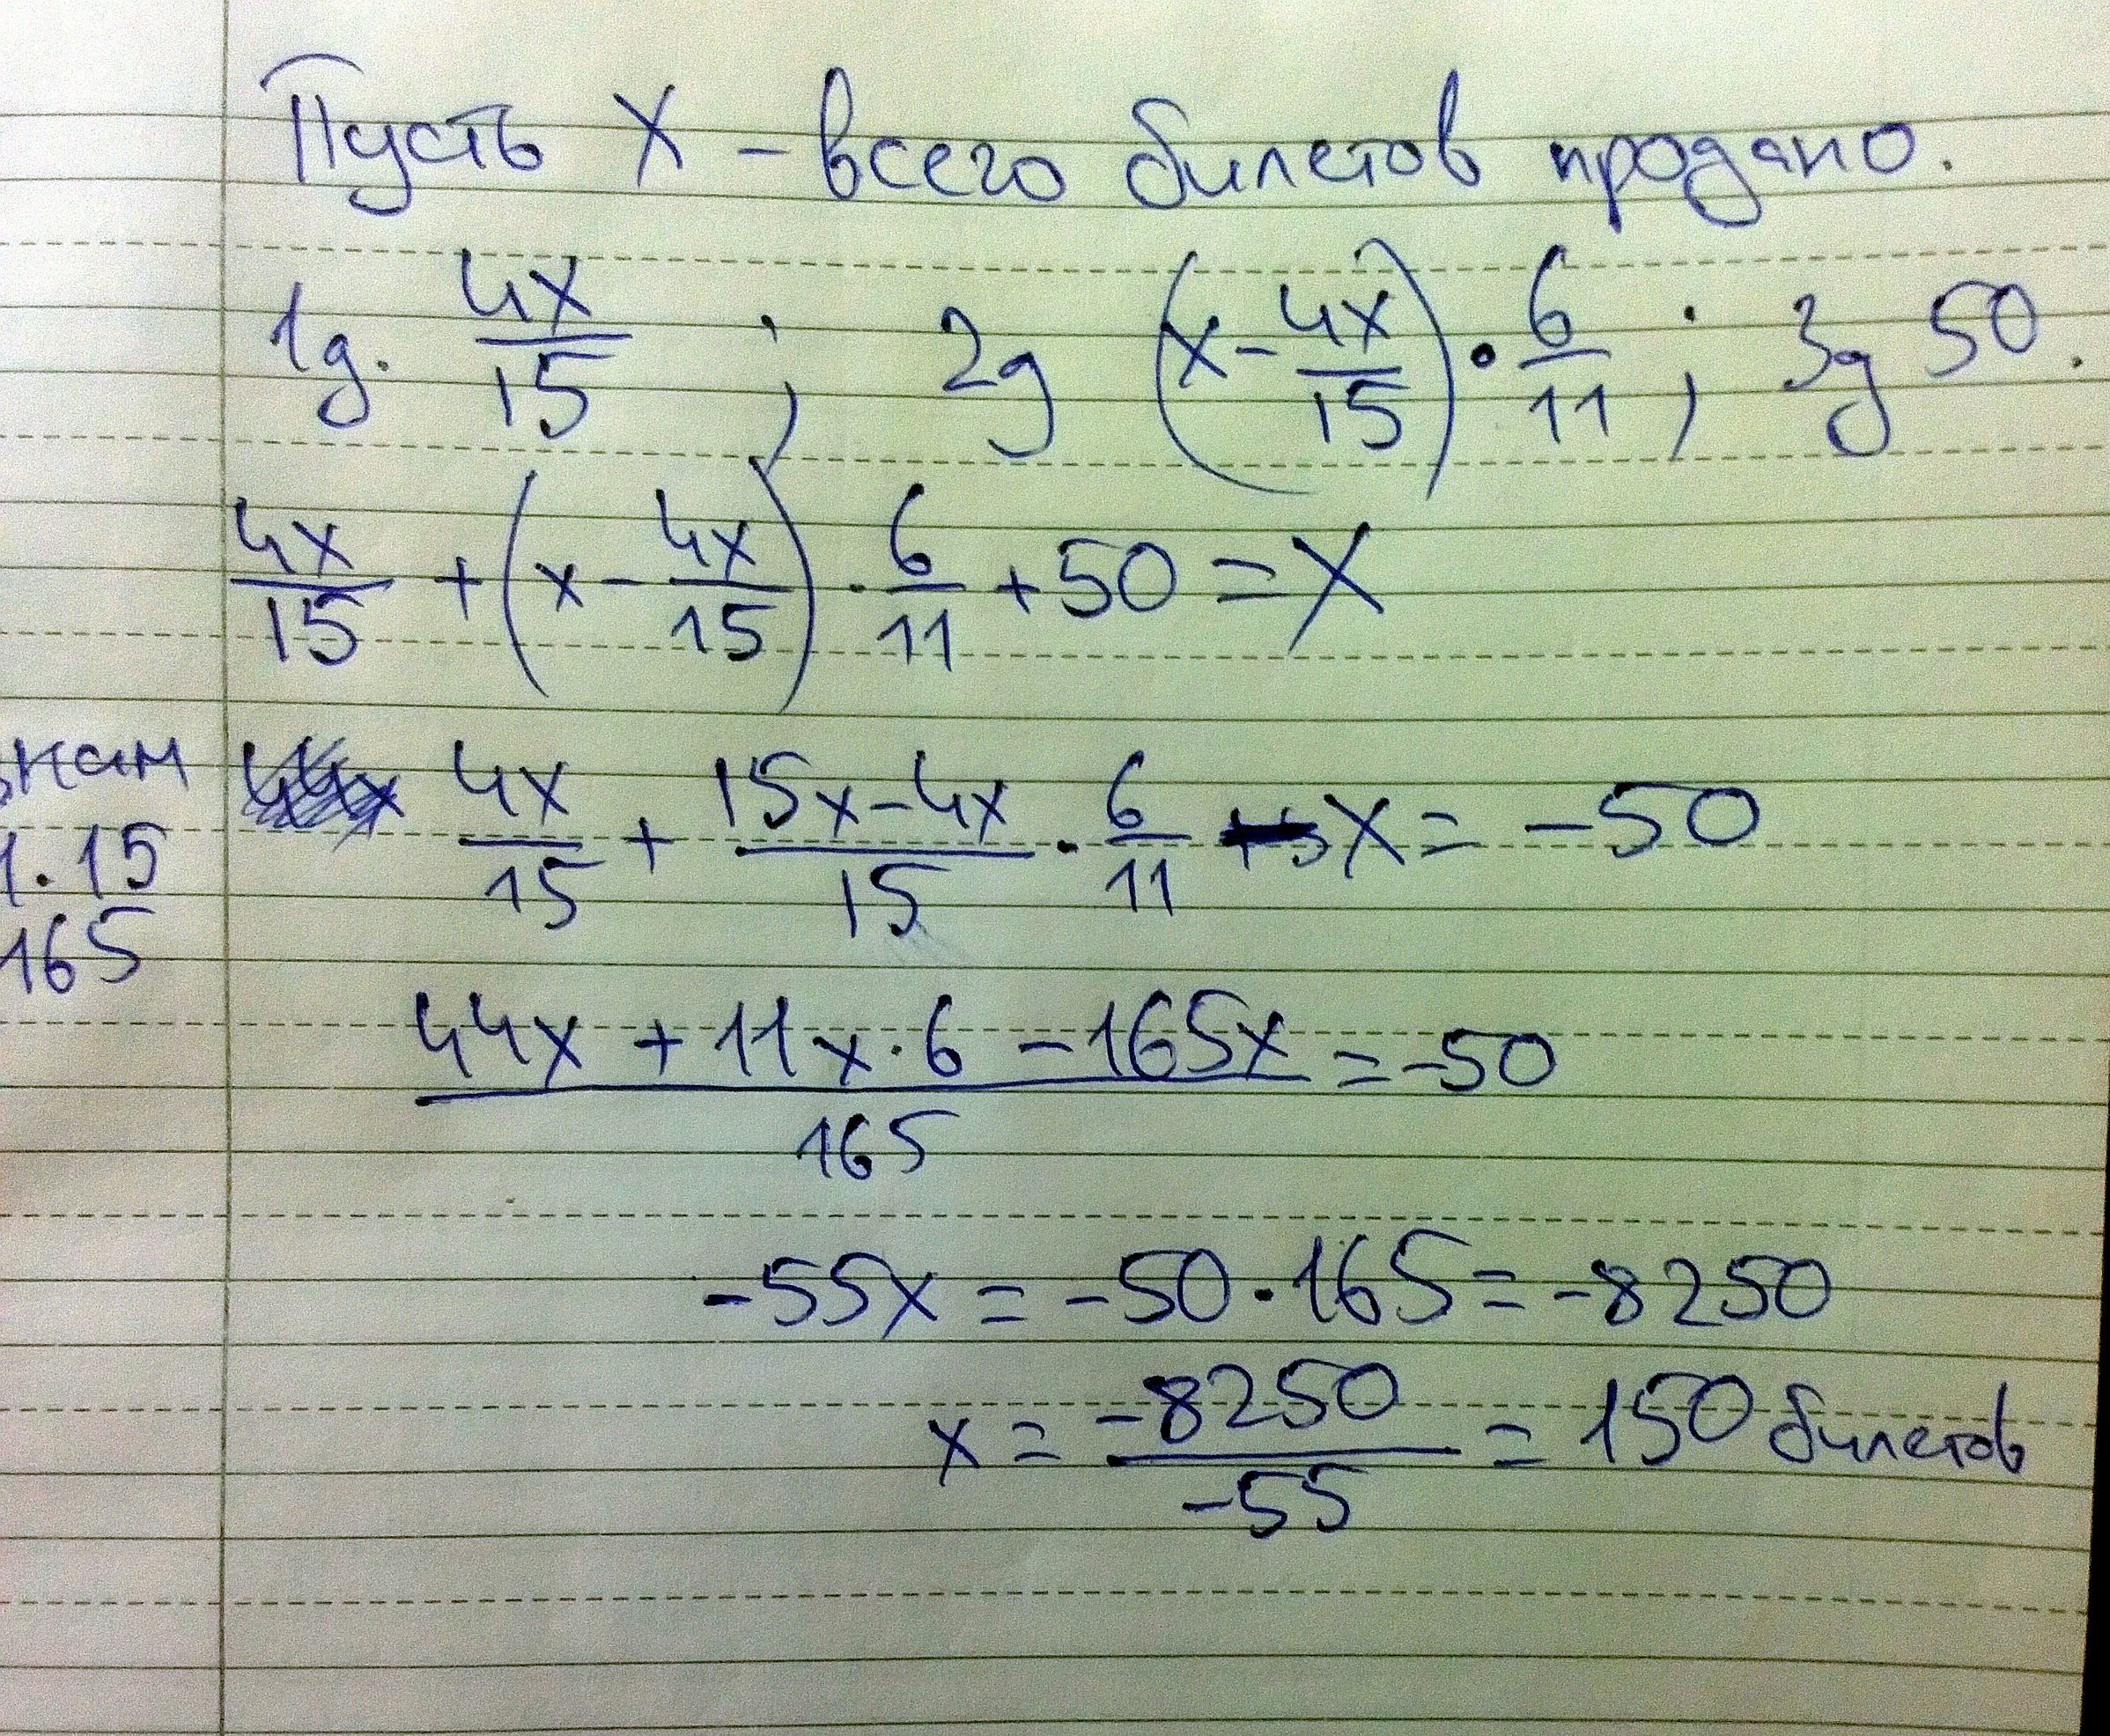 Пусть X - всего билетов продано.
1д. 4x/15 ; 2д (x - 4x/15) · 6/11 ; 3д 50.
4x/15 + (x - 4x/15) · 6/11 + 50 = X
знам 4x/15 + 15x-4x/15 · 6/11 - X = -50
1·15
165
44x + 11x·6 - 165x/165 = -50
-55x = -50·165 = -8250
x = -8250/-55 = 150 билетов